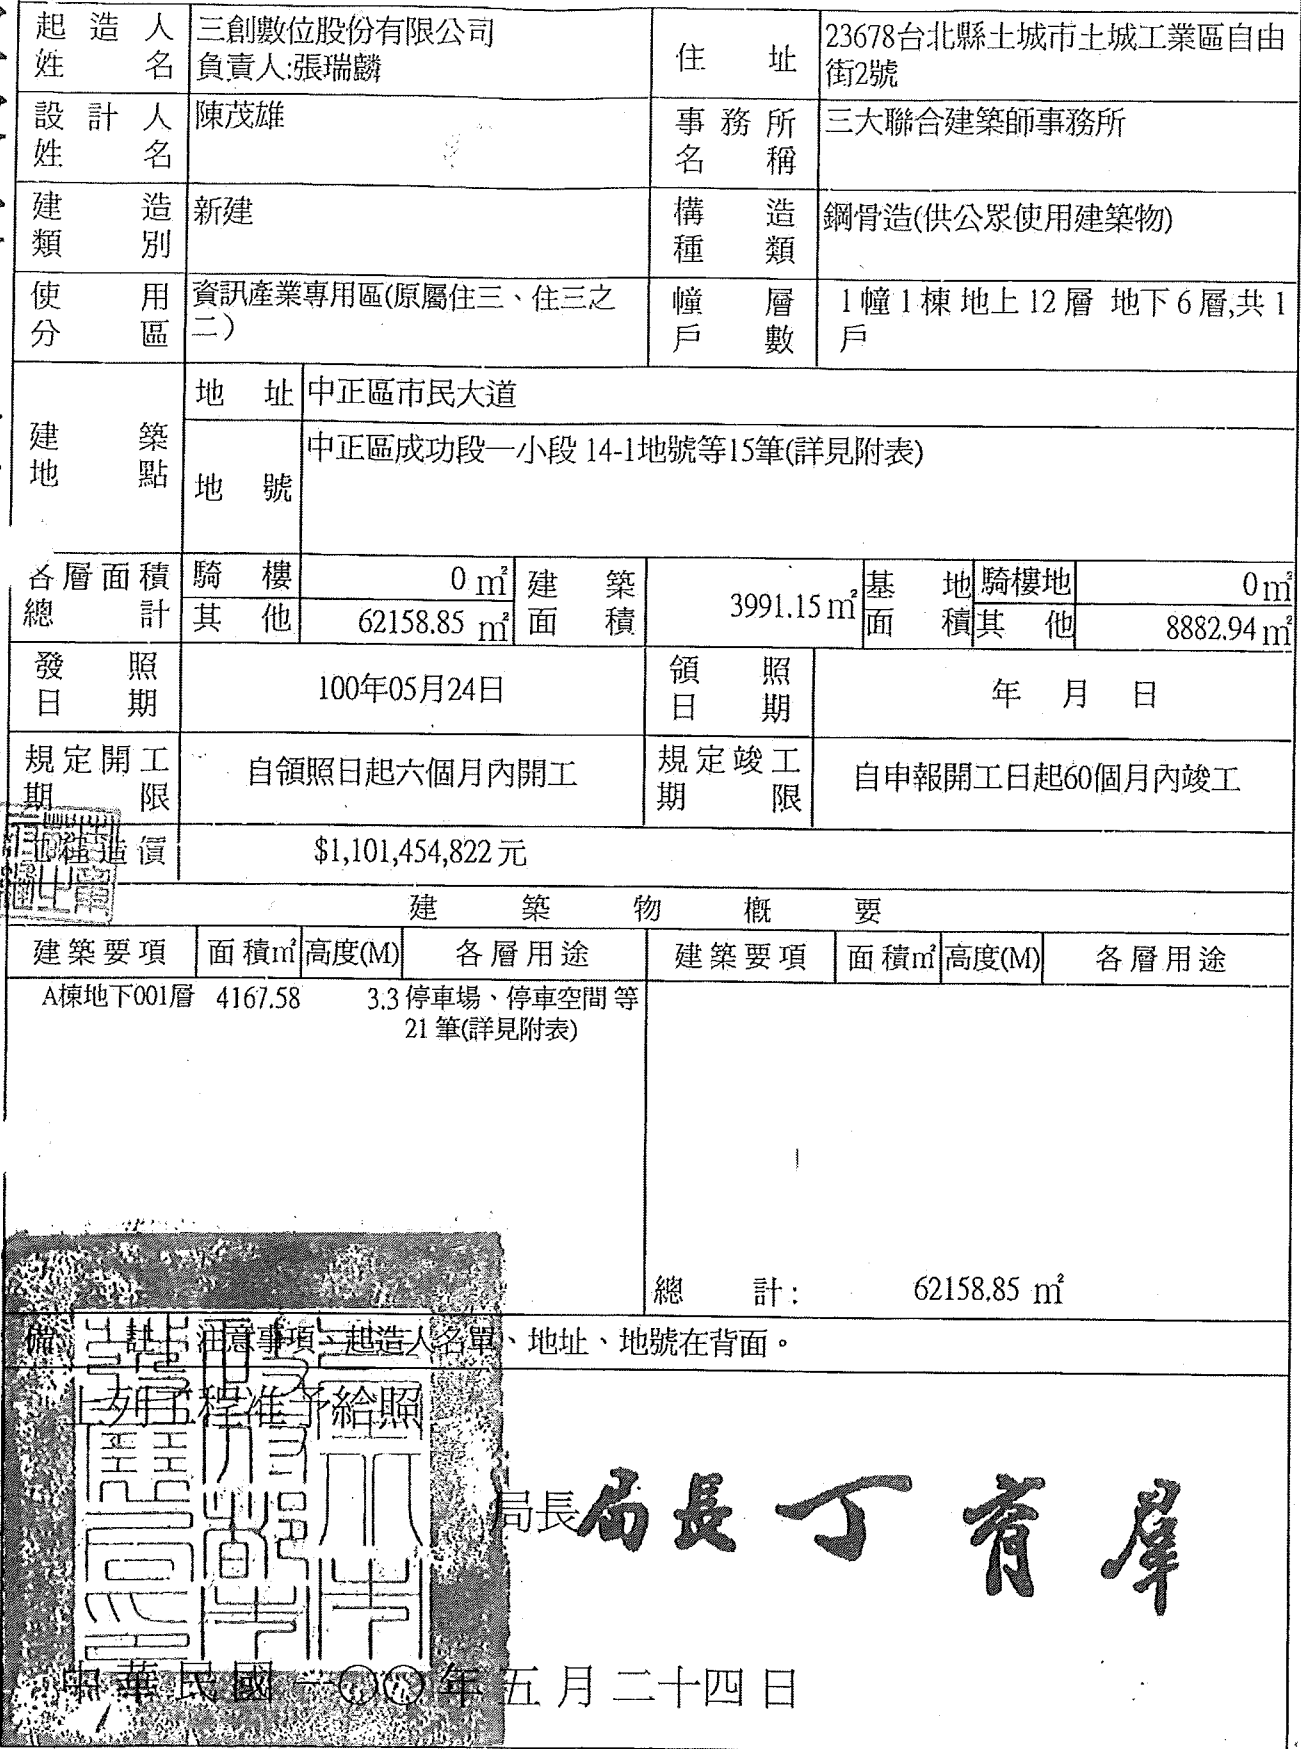 起造人姓名 三創數位股份有限公司 負責人:張瑞麟 住址 23678台北縣土城市土城工業區自由街2號
設計人姓名 陳茂雄 事務所名稱 三大聯合建築師事務所
建造類別 新建 構造種類 鋼骨造(供公眾使用建築物)
使用分區 資訊產業專用區(原屬住三、住三之二) 幢層戶數 1幢1棟 地上12層 地下6層,共1戶
建築地點 地址 中正區市民大道
地號 中正區成功段一小段 14-1地號等15筆(詳見附表)
各層面積總計 騎樓 0 ㎡ 其他 62158.85 ㎡ 建築面積 3991.15㎡ 基地面積 騎樓地 0㎡ 其他 8882.94㎡
發照日期 100年05月24日 領照日期 年 月 日
規定開工期限 自領照日起六個月內開工 規定竣工期限 自申報開工日起60個月內竣工
造價 $1,101,454,822元
建築物概要
建築要項 面積㎡ 高度(M) 各層用途 建築要項 面積㎡ 高度(M) 各層用途
A棟地下001層 4167.58 3.3 停車場、停車空間 等
21 筆(詳見附表)
總計: 62158.85 ㎡
備註 注意事項、起造人名單、地址、地號在背面。
上列工程准予給照
局長 局長丁育群
中華民國一〇〇年五月二十四日